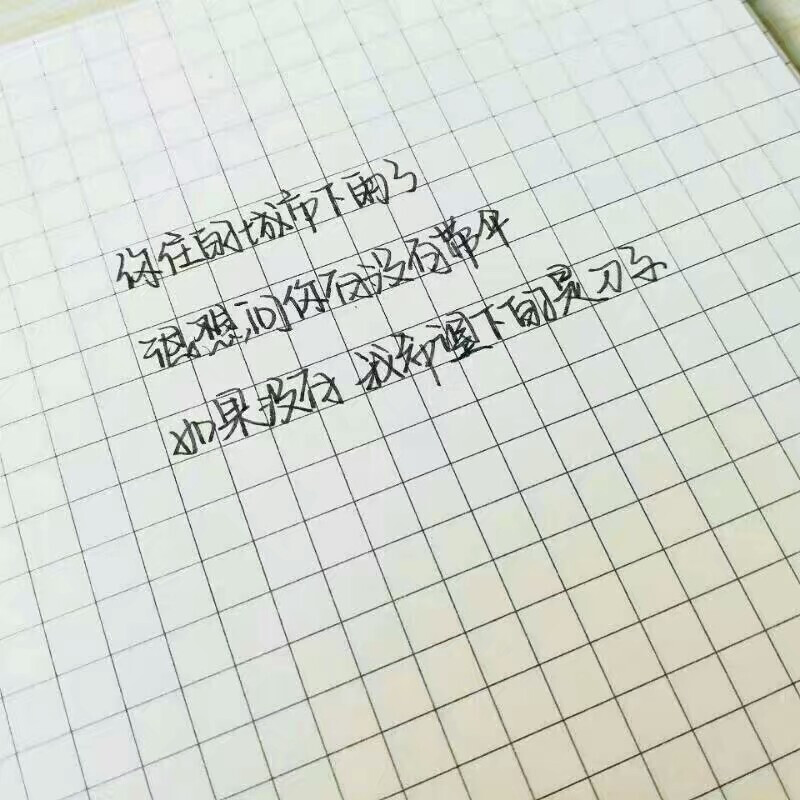 你在的城市下雨了
很想问你有没有带伞
如果没有 我希望下的是刀子